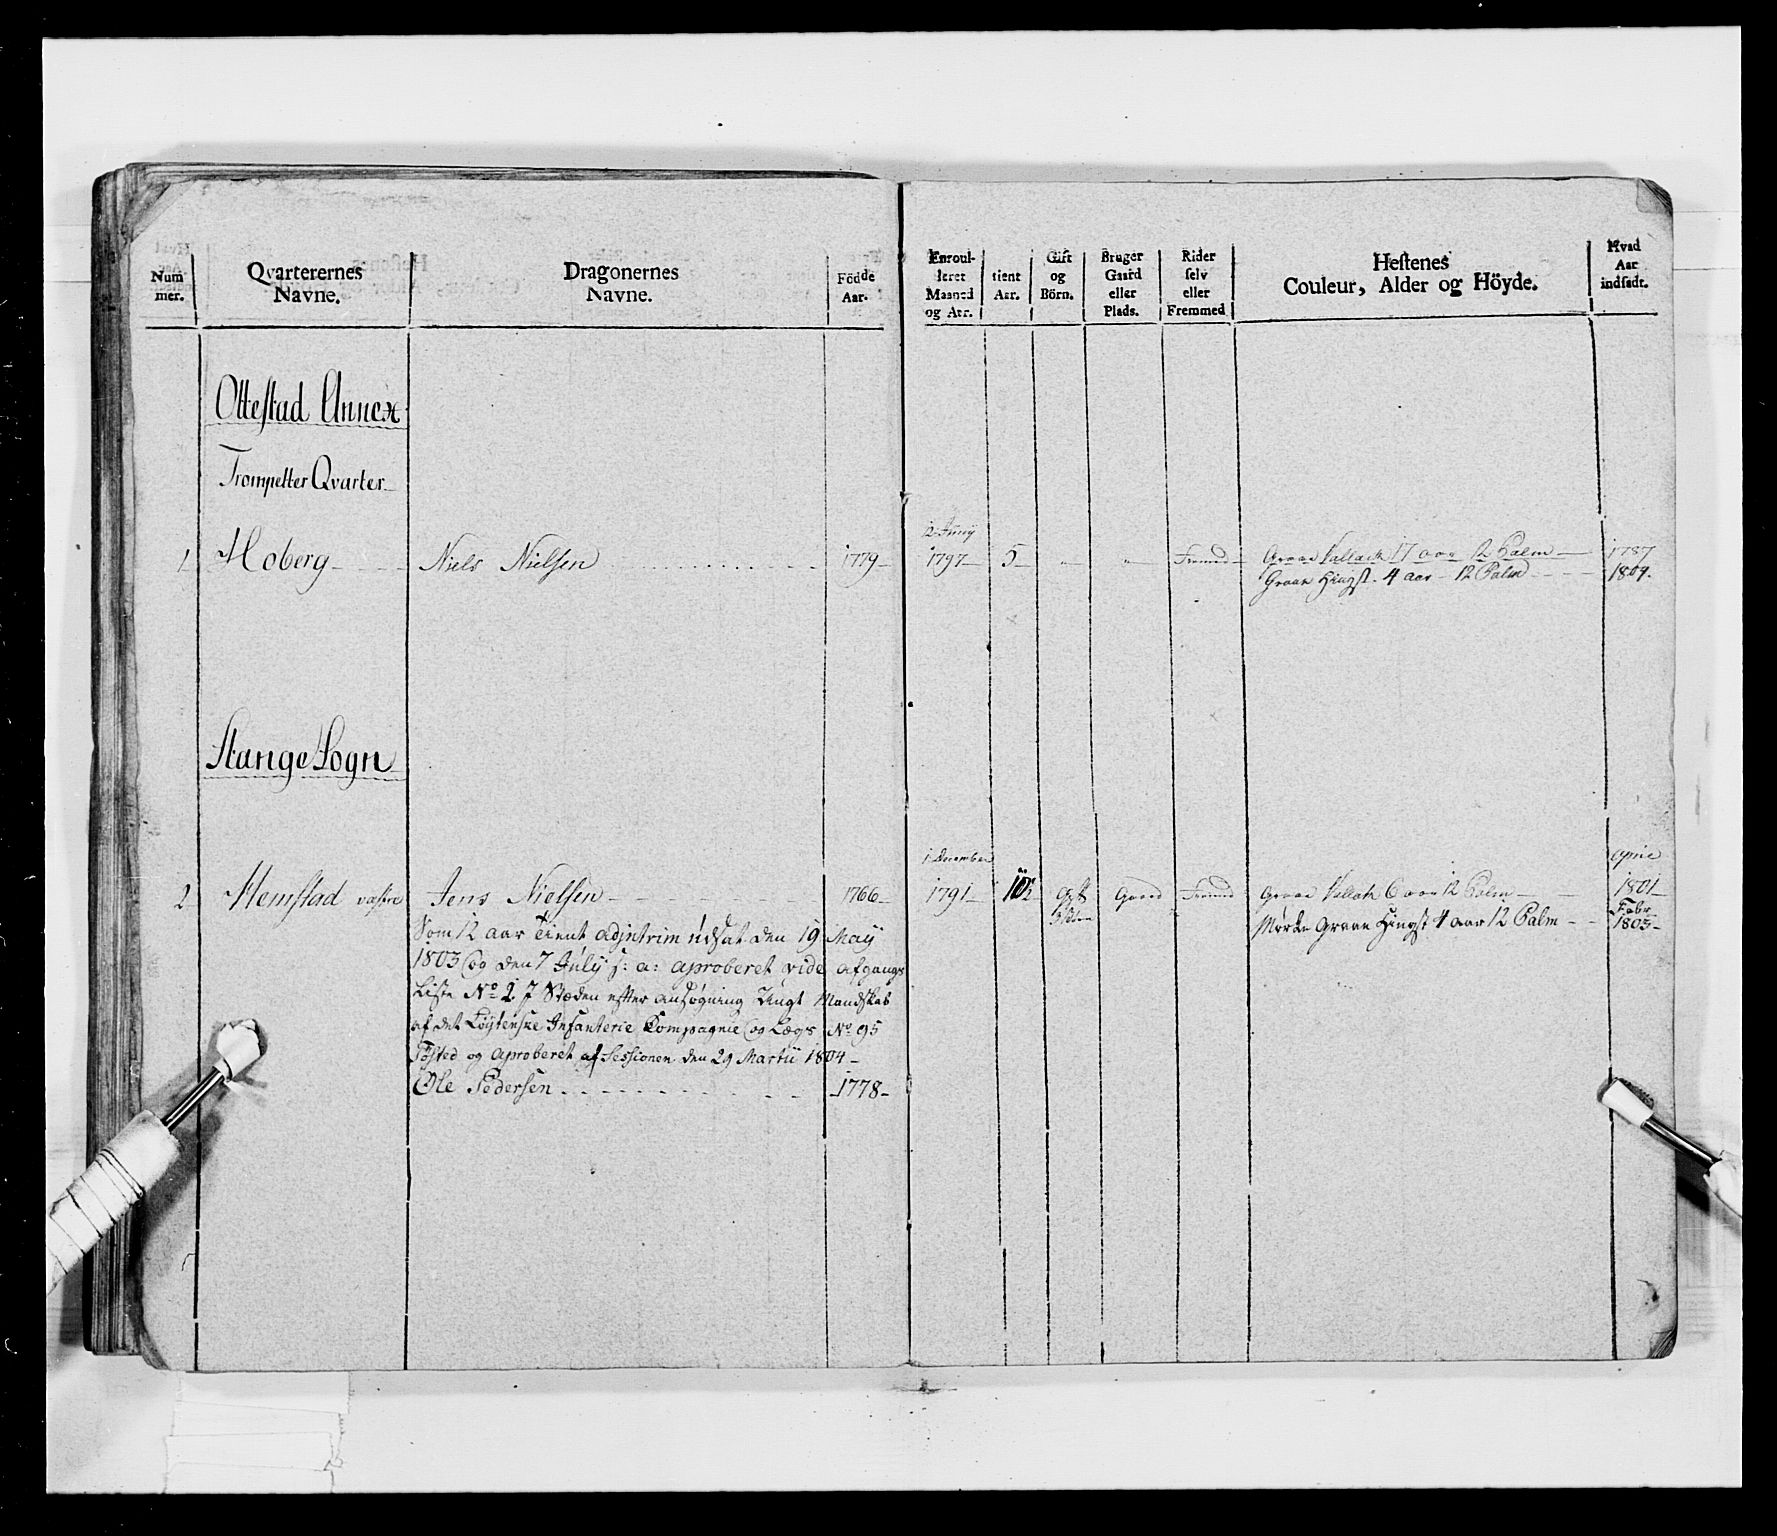 Num
mer.
Qvarterernes
Navne.
Dragonernes
Navne.
Födde
Aar.
Enroul-
leret
Maaned
og Aar.
tient
Aar.
Gift
og
Börn.
Bruger
Gaard
eller
Plads.
Rider
selv
eller
Fremmed
Hestenes
Couleur, Alder og Höyde.
Hvad
Aar
indsadt.
Ottestad Annex
Trompetter Qvarter
12 Junij
1 Hoberg Niels Nielsen 1779 1797 5 " " Fremed Graae Vallack 17 aar 12 Palm 1787
Graae Hingst 4 aar 12 Palm 1804.
Stange Sogn
1 December april
2 Hemstad vestre Jens Nielsen 1766 1791 10½ Gift Gaard Fremed Graae Vallack 6 aar 12 Palm 1801
3 Børn Febr
Mørke Graae Hingst 4 aar 12 Palm 1803
Som 12 aar Tient adjntrim udsat den 19 May
1803 og den 7 July s: a: aproberet vide afgangs
Liste No 2. J Stæden efter ansøgning Lagt Mandskab
af det Løytenske Infanterie Kompagnie og Lægs No 95
og aproberet af Sessionen den 29 Martii 1804
Ole Pedersen 1778